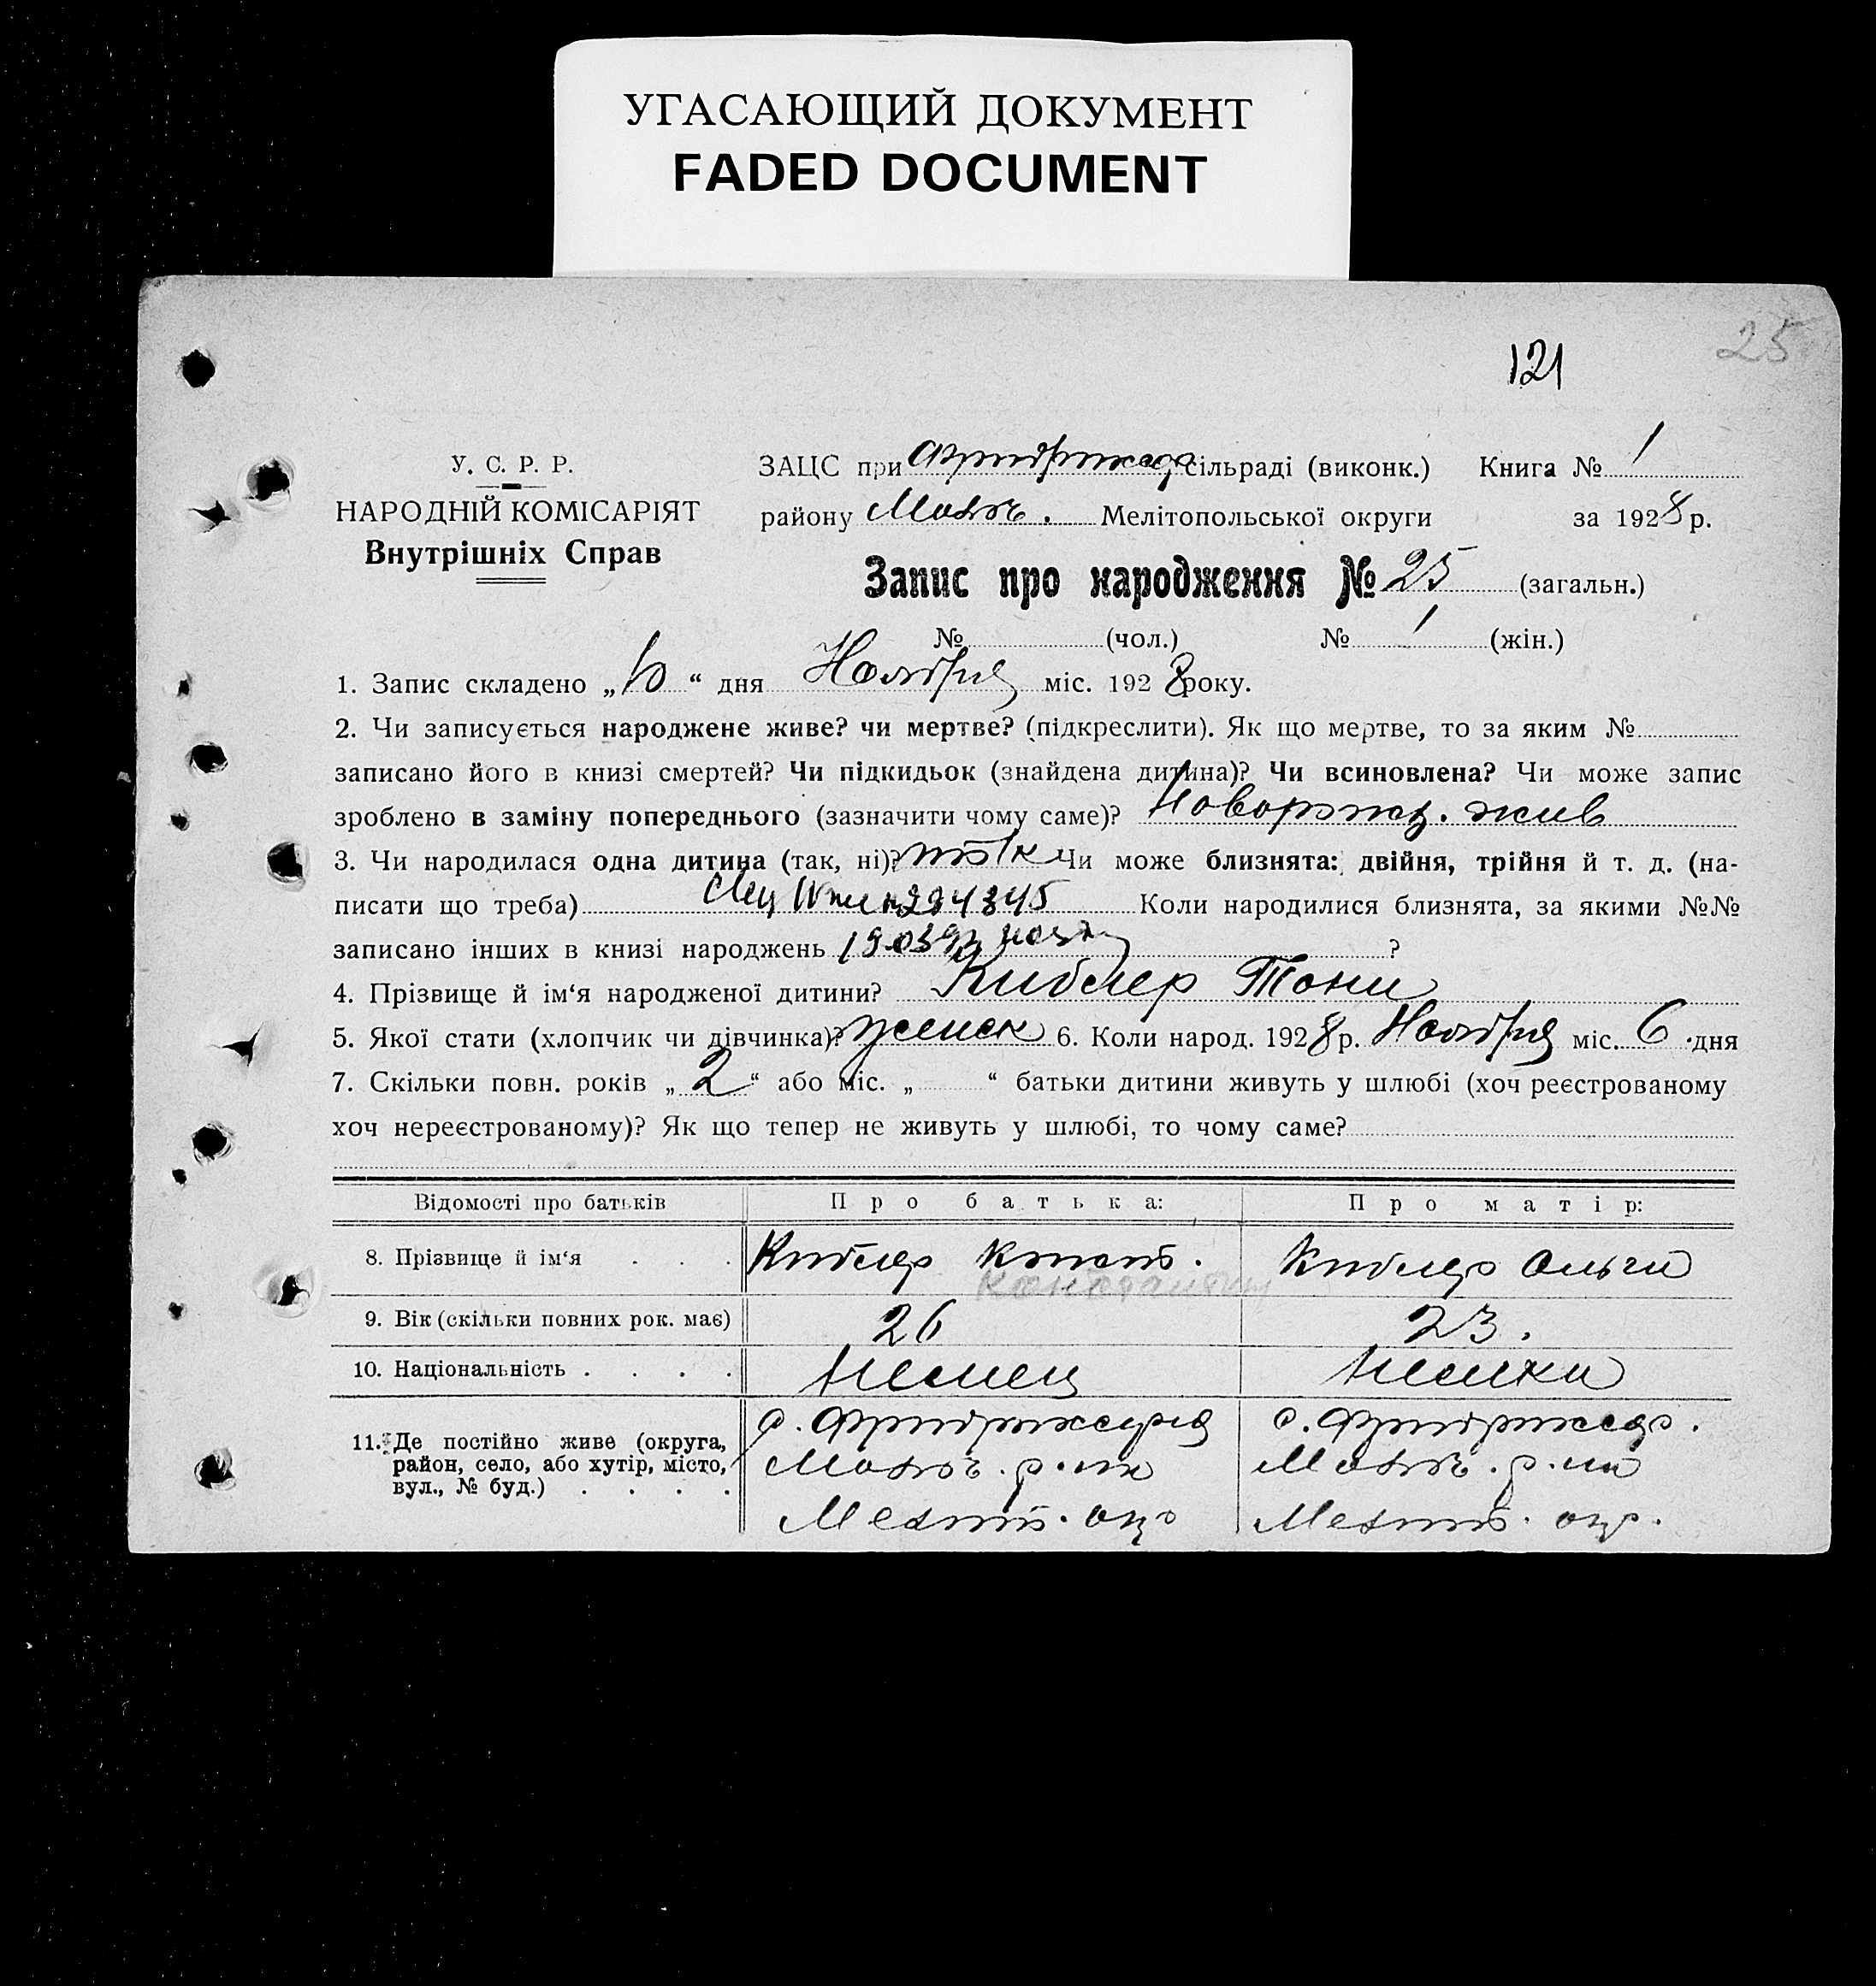 УГАСАЮЩИЙ ДОКУМЕНТ
FADED DOCUMENT
25
121
У. С. Р. Р.
НАРОДНІЙ КОМІСАРІЯТ
Внутрішніх Справ
ЗАЦС при сільраді (виконк.) Книга № 1
району Молоч. Мелітопольської округи за 1928 р.
Запис про народження № 25 (загальн.)
№ (чол.) № 1 (жін.)
1. Запис складено „10“ дня Ноября міс. 1928 року.
2. Чи записується народжене живе? чи мертве? (підкреслити). Як що мертве, то за яким №
записано його в книзі смертей? Чи підкидьок (знайдена дитина)? Чи всиновлена? Чи може запис
зроблено в заміну попереднього (зазначити чому саме)? Новорожд. жив
3. Чи народилася одна дитина (так, ні)? так Чи може близнята: двійня, трійня й т. д. (на-
писати що треба) Коли народилися близнята, за якими №№
записано інших в книзі народжень ?
4. Прізвище й ім‘я народженої дитини? Киблер Тони
5. Якої стати (хлопчик чи дівчинка)? женск 6. Коли народ. 1928 р. Ноября міс. 6 дня
7. Скільки повн. років „2“ або міс. „ “ батьки дитини живуть у шлюбі (хоч реєстрованому
хоч нереєстрованому)? Як що тепер не живуть у шлюбі, то чому саме?
Відомості про батьків Про батька: Про матір:
8. Прізвище й ім‘я . . . Киблер Конст. Киблер Ольги
Константин
9. Вік (скільки повних рок. має) 26 23.
10. Національність . . . . Немец Немки
11. Де постійно живе (округа,
район, село, або хутір, місто,
вул., № буд.) . . . .
с. Фридрихсфельд с. Фридрихсф.
Молоч. р-на Молоч. р-на
Мелит. окр Мелит. окр.